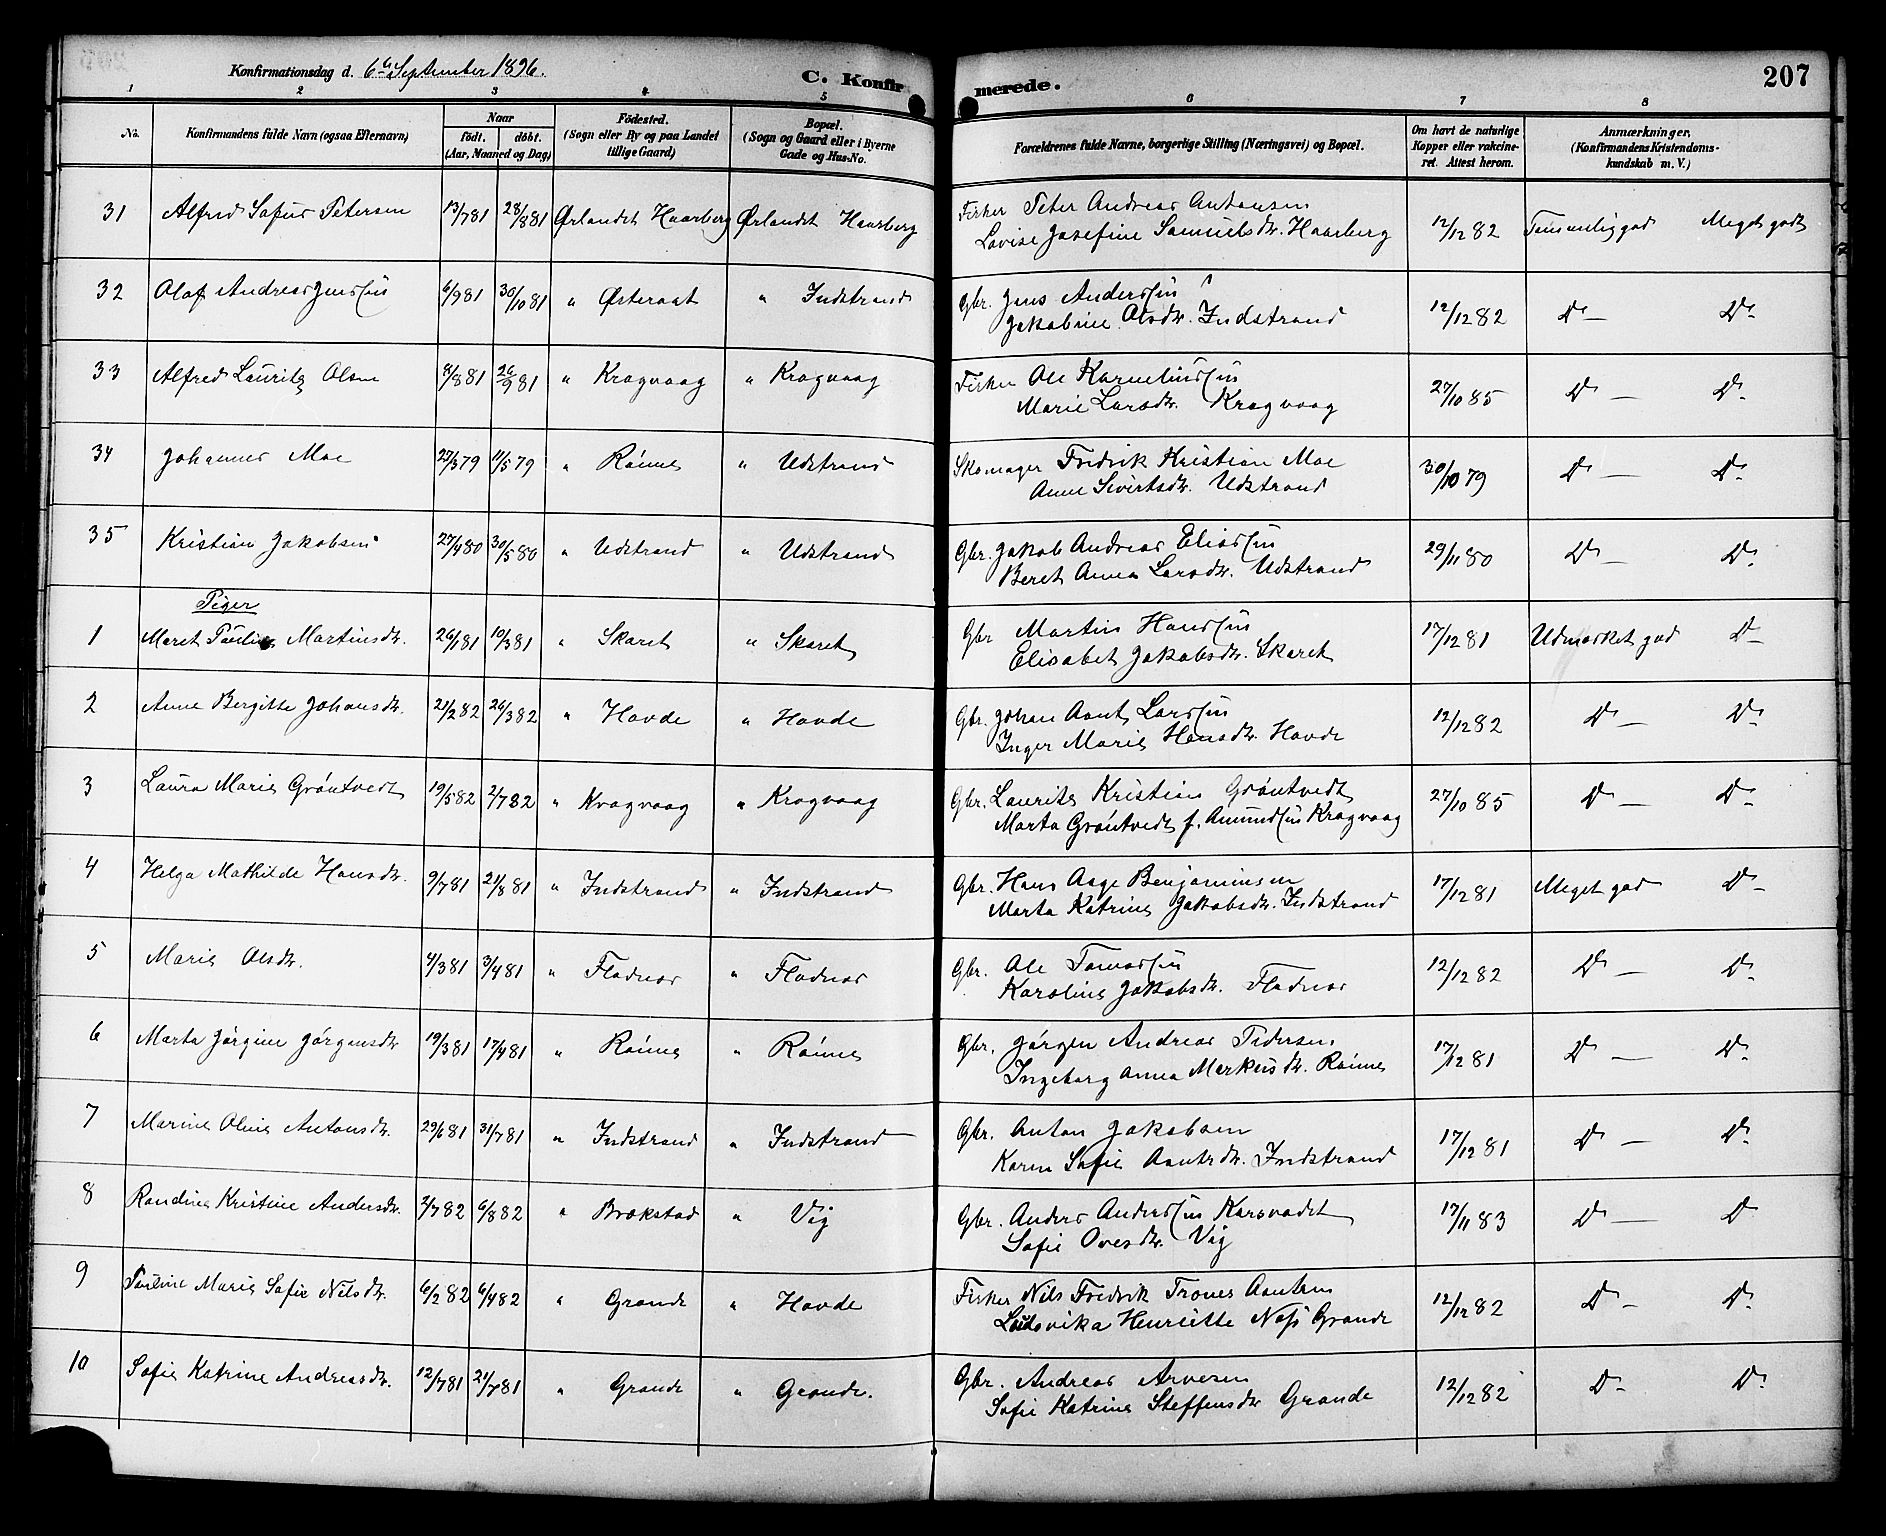 Konfirmationsdag d. 6te September 1896. C. Konfirmerede. 207
1 2 3 4 5 6 7 8
No. Konfirmandens fulde Navn (ogsaa Efternavn) Naar födt. döbt. (Aar, Maaned og Dag) Födested. (Sogn eller By og paa Landet tillige Gaard) Bopæl. (Sogn og Gaard eller i Byerne Gade og Hus-No. Forældrenes fulde Navne, borgerlige Stilling (Næringsvei) og Bopæl. Om havt de naturlige Kopper eller vakcineret. Attest herom. Anmærkninger. (Konfirmandens Kristendomskundskab m. V.)
31 Alfred Sofus Petersen 13/7 81 28/8 81 Ørlandet Haarberg Ørlandet Haarberg Fisker Peter Andreas Antonsen
Lovise Josefine Samuelsdtr. Haarberg 12/12 82 Temmelig god Meget godt
32 Olaf Andreas Jenssen 6/9 81 30/10 81 " Østeraat " Indstrand Gbr. Jens Anderssen
Jakobine Olsdtr. Indstrand 12/12 82 Do — Do
33 Alfred Laurits Olsen 8/8 81 26/9 81 " Kragvaag " Kragvaag Fisker Ole Korneliussen
Marie Larsdtr. Kragvaag 27/10 85 Do — Do
34 Johannes Moe 23/3 79 11/5 79 " Rönne " Udstrand Skomager Fredrik Kristian Moe
Anne Sivertsdtr. Udstrand 30/10 79 Do — Do
35 Kristian Jakobsen 27/4 80 30/5 80 " Udstrand " Udstrand Gbr. Jakob Andreas Eliassen
Beret Anna Larsdtr. Udstrand 29/11 80 Do — Do
Piger
1 Meret Pauline Martinsdtr. 26/1 81 10/3 81 " Skaret " Skaret Gbr Martin Hanssen
Elisabet Jakobsdtr. Skaret 17/12 81 Udmærket god Do —
2 Anne Bergitte Johansdtr. 21/2 82 26/3 82 " Hovde " Hovde Gbr. Johan Aant Larssen
Inger Marie Hansdtr. Hovde 12/12 82 Do — Do
3 Laura Marie Gröntvedt 19/5 82 2/7 82 " Kragvaag " Kragvaag Gbr. Laurits Kristian Gröntvedt
Marta Gröntvedt f. Amundsen Kragvaag 27/10 85 Do — Do
4 Helga Mathilde Hansdtr. 9/7 81 21/8 81 " Indstrand " Indstrand Gbr. Hans Aage Benjaminsen
Marta Katrine Jakobsdtr. Indstrand 17/12 81 Meget god Do —
5 Marie Olsdtr. 4/3 81 3/4 81 " Fladnes " Fladnes Gbr. Ole Tomassen
Karoline Jakobsdtr. Fladnes 12/12 82 Do — Do
6 Marta Jörgine Jörgensdtr 19/3 81 17/4 81 " Rönne " Rönne Gbr. Jörgen Andreas Pedersen
Ingeborg Anna Merkusdtr. Rönne 17/12 81 Do — Do
7 Marine Oline Antonsdtr. 29/6 81 31/7 81 " Indstrand " Indstrand Gbr. Anton Jakobsen
Karen Sofie Aantsdtr. Indstrand 17/12 81 Do — Do
8 Randine Kristine Andersdtr. 2/7 82 6/8 82 " Brækstad " Vig Gbr. Anders Anderssen
Sofie Ovesdtr. Vig 17/11 83 Do — Do
9 Pauline Marie Sofie Nilsdtr. 6/2 82 6/4 82 " Grande " Hovde Fisker Nils Fredrik
Ludovika Henriette Grande 12/12 82 Do — Do
10 Sofie Katrine Andreasdtr. 12/7 81 21/7 81 " Grande " Grande. Gbr. Andreas Arvesen
Sofie Katrine Steffensdtr Grande 12/12 82 Do - Do